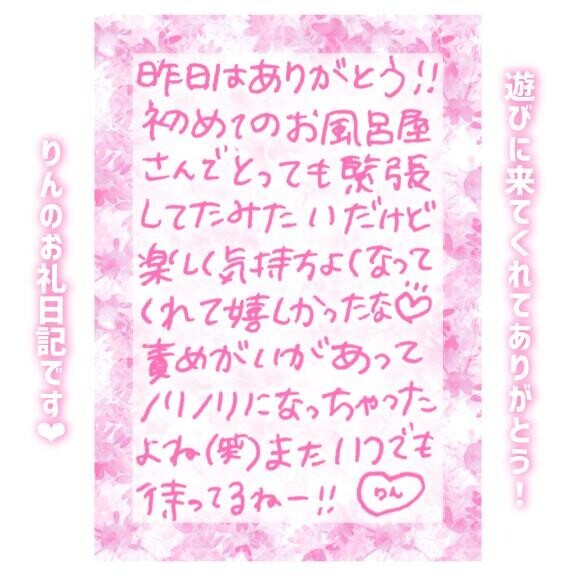 遊びに来てくれてありがとう！
昨日はありがとう!!
初めてのお風呂屋
さんでとっても緊張
してたみたいだけど
楽しく気持ちよくなって
くれて嬉しかったな♡
責めがいがあって
ノリノリになっちゃった
よね(笑)またいつでも
待ってるねー!!
りん
りんのお礼日記です❤